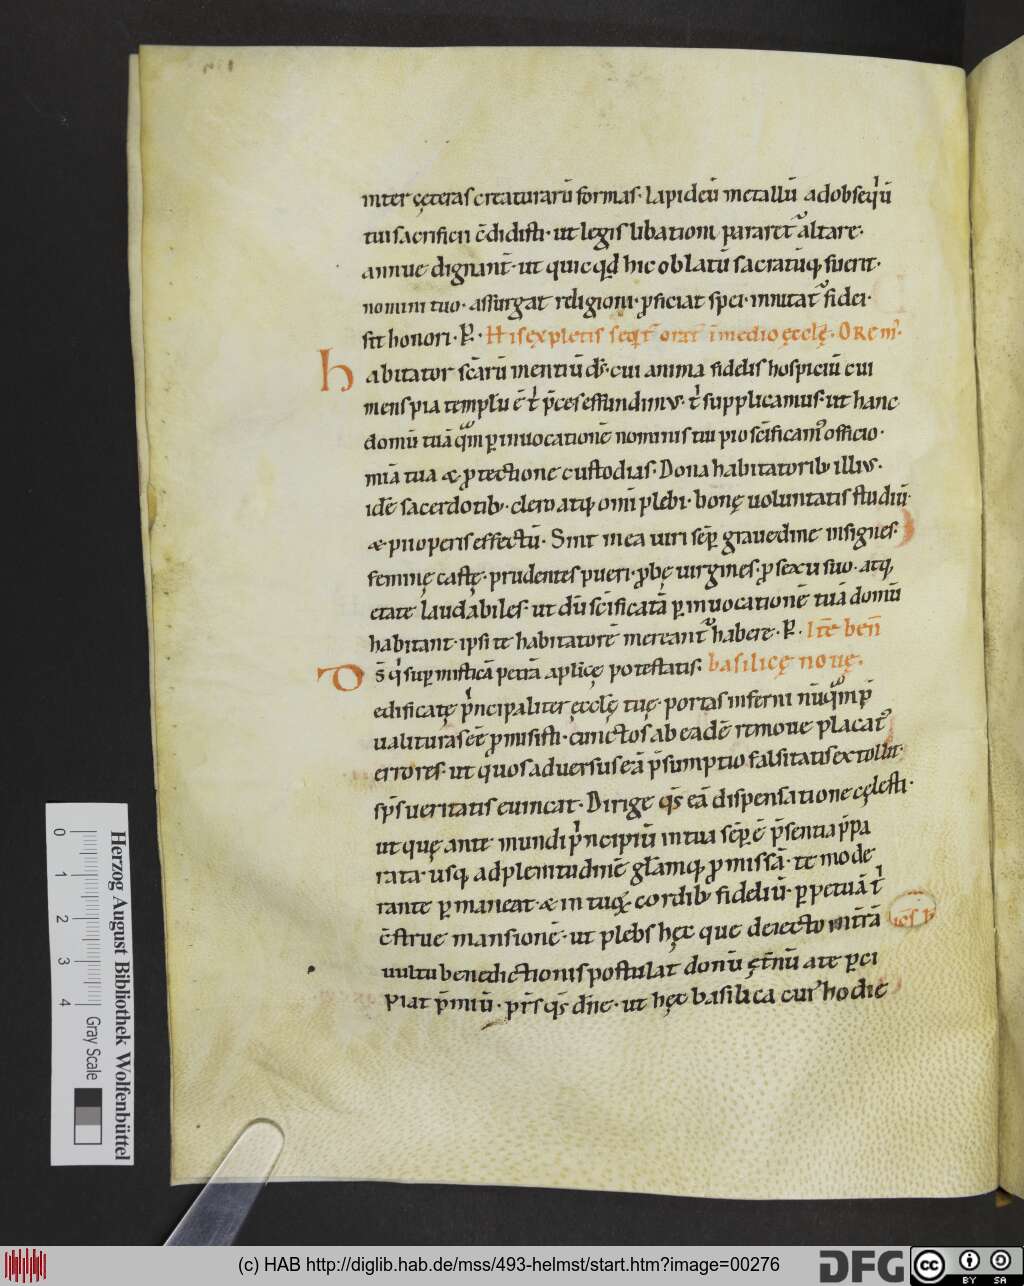 inter cęteras creaturarū formas· lapideū metallū adobseqͥū
tui sacrificii c̄didisti· ut legis libationi pararet᷒ altare·
annue dignant̄· ut quicqd̄ hic oblatū sacratūq; fuerit·
nomini tuo· assurgat religioni· ꝓficiat spei· innitat᷒ fidei·
sit honori· P̄· His expletis seqt̄ orat̄ īmedio ęcclę̄· Orem᷒·
habitator sc̄arū mentiū ds̄· cui anima fidelis hospiciū cui
mens pia templū ē t̄ p̄ces effundimus· t̄ supplicamus· ut hanc
domū tuā qͣm ꝑ inuocationē nominis tui pio sc̄ificam᷒ officio·
miā tua & ꝓtectione custodias· Dona habitatorib; illius·
idē sacerdotib; clero atq; omi plebi· bonę uoluntatis studiū
& pii operis effectū· Sint in ea uiri semꝑ grauedine insignes·
feminę castę· prudentes pueri· ꝓbę uirgines· ꝓ sexu suo· atq;
etate laudabiles· ut dū sc̄ificatā ꝑ inuocationē tuā domū
habitant· ipsi te habitatorē mereant᷒ habere· P̄· Itē ben̄
Ds̄ qͥ suꝑ misticā petrā aplicę potestatis· basilicę nouę·
edificatę pͥncipaliter ęcclę̄ tuę· portas inferni nūqͣm p̄
ualituras eē ꝓmisisti· cunctos ab eadē remoue placat᷒
errores· ut quos aduersus eā p̄sumptio falsitatis extollit·
sp̄s ueritatis euincat· Dirige qs̄ eā dispensatione cęlesti·
ut quę ante mundi pͥncipiū in tua semꝑ ē p̄sentia p̄pa
rata· usq; ad plenitudinē gl̄amq; ꝓmissā· te mode
rante ꝑmaneat· & in tuoꝝ cordib; fideliū· ꝑpetuā t̄
c̄strue mansionē· ut plebs hęc que deiecto intrā
uultu benedictionis postulat donū ęt̄nū a te ꝑci
piat p̄miū· pr̄s qs̄ dn̄e· ut hęc basilica cui᷒ hodie
0 1 2 3 4
Herzog August Bibliothek Wolfenbüttel
Gray Scale
(c) HAB http://diglib.hab.de/mss/493-helmst/start.htm?image=00276
DFG
cc BY SA